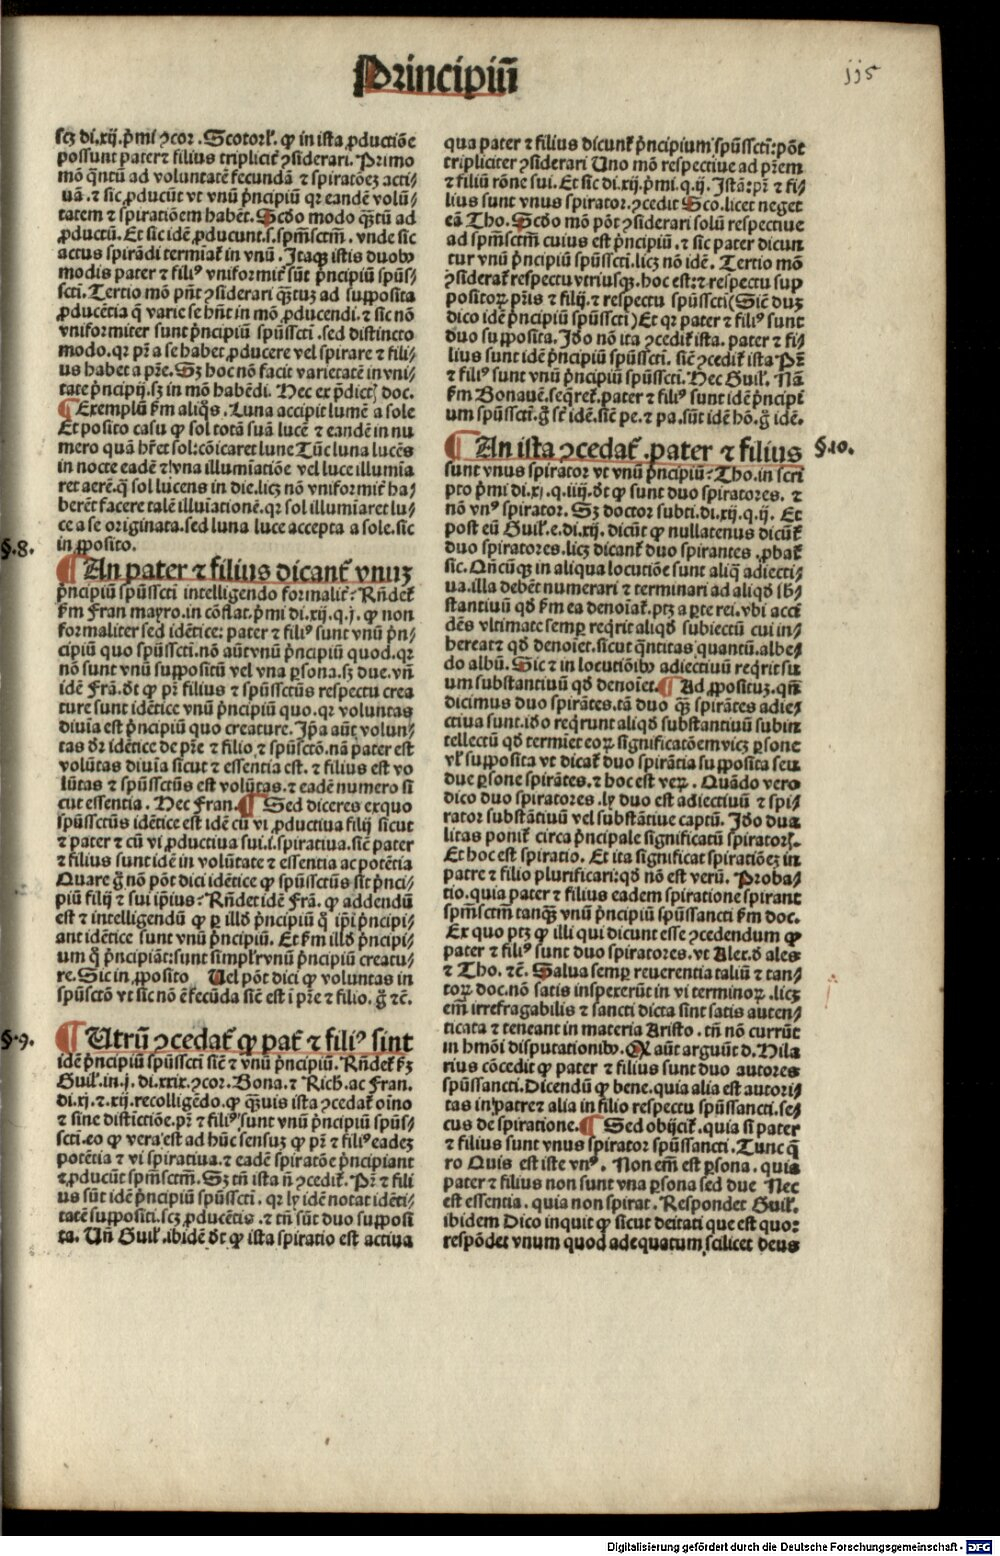 Principiū
jj5
scʒ di.xij.p̄mi ꝯcor. Scotorꝭ. ꝙ in ista ꝓductiōe
possunt pater⁊ filius triplicit̉ ꝯsiderari. Primo
mō q̄ntū ad voluntatē fecundā ⁊ spiratōeʒ acti/
uā. ⁊ sic ꝓducūt vt vnū p̄ncipiū qꝛ eandē volū/
tatem ⁊ spiratiōem habēt. Scd̄o modo qʒtū ad
ꝓductū. Et sic idē ꝓducunt.s.spm̄sctm̄. vnde sic
actus spirādi termiat̉ in vnū. Itaqꝫ istis duobꝰ
modis pater ⁊ filiꝰ vniformit̉ sūt p̄ncipiū spūs/
scti. Tertio mō pn̄t ꝯsiderari qʒtuʒ ad supposita
ꝓducētia q̄ varie se hn̄t in mō ꝓducendi. ⁊ sic nō
vniformiter sunt p̄ncipiū spūsscti. sed distincto
modo. qꝛ pr̄ a se habet ꝓducere vel spirare ⁊ fili/
us habet a pr̄e. Sʒ hoc nō facit varietatē in vni/
tate p̄ncipij. sʒ in mō habēdi. Hec ex p̄dictꝭ doc.
¶ Exemplū ẜm aliq̄s. Luna accipit lumē a sole
Et posito casu ꝙ sol totā suā lucē ⁊ eandē in nu
mero quā hr̄et sol: cōicaret lune Tūc luna lucēs
in nocte eadē ⁊ vna illumiatiōe vel luce illumia
ret aerē. q̄ sol lucens in die. licʒ nō vniformit̉ ha/
berēt facere talē illuīationē. qꝛ sol illumiaret lu/
ce a se originata. sed luna luce accepta a sole. sic
in ꝓposito.
§.8.
¶ An pater ⁊ filius dicant̉ vnuʒ
p̄ncipiū spūsscti intelligendo formalit̉? Rn̄det̉
ẜm Fran mayro. in cōflat. p̄mi di.xij.q.j. ꝙ non
formaliter sed idētice: pater ⁊ filiꝰ sunt vnū p̄n/
cipiū quo spūsscti. nō aūt vnū p̄ncipiū quod. qꝛ
nō sunt vnū suppositū vel vna ꝑsona. sʒ due. vn̄
idē Frā. dt̄ ꝙ pr̄ filius ⁊ spūssctūs respectu crea
ture sunt idētice vnū p̄ncipiū quo. qꝛ voluntas
diuīa est p̄ncipiū quo creature. Ip̄a aūt volun/
tas dr̄ idētice de pr̄e ⁊ filio ⁊ spūsctō. nā pater est
volūtas diuīa sicut ⁊ essentia est. ⁊ filius est vo
lūtas ⁊ spūssctūs est volūtas. ⁊ eadē numero si
cut essentia. Hec Fran. ¶ Sed diceres exquo
spūssctūs idētice est idē cū vi ꝓductiua filij sicut
⁊ pater ⁊ cū vi ꝓductiua sui.i.spiratiua. siē pater
⁊ filius sunt idē in volūtate ⁊ essentia ac potētia
Quare g̊ nō pōt dici idētice ꝙ spūssctūs sit p̄nci/
piū filij ⁊ sui ipius? Rn̄det idē Frā. ꝙ addendū
est ⁊ intelligendū ꝙ ꝑ illd̄ p̄ncipiū q̊ ipi p̄ncipi/
ant idētice sunt vnū p̄ncipiū. Et ẜm illd̄ p̄ncipi/
um q̊ p̄ncipiāt: sunt simplr̄ vnū p̄ncipiū creatu/
re. Sic in ꝓposito Uel pōt dici ꝙ voluntas in
spūsctō vt sic nō ē fecūda siē est i pr̄e ⁊ filio. g̊ ⁊c̄.
§.9.
¶ Utrū ꝯcedat̉ ꝙ pat̉ ⁊ filiꝰ sint
idē p̄ncipiū spūsscti siē ⁊ vnū p̄ncipiū. Rn̄det̉ ẜʒ
Guil̉. in.j. di.xxix. ꝯcor. Bona. ⁊ Rich. ac Fran.
di.xj.⁊.xij. recolligēdo. ꝙ qʒuis ista ꝯcedat̉ oīno
⁊ sine distīctiōe. pr̄ ⁊ filiꝰ sunt vnū p̄ncipiū spūs/
scti. eo ꝙ vera est ad hūc sensuʒ ꝙ pr̄ ⁊ filiꝰ eadeʒ
potētia ⁊ vi spiratiua. ⁊ eadē spiratōe p̄ncipiant
⁊ ꝓducūt spm̄sctm̄. Sʒ tn̄ ista n̄ ꝯcedit̉. Pr̄ ⁊ fili
us sūt idē p̄ncipiū spūsscti. qꝛ ly idē notat idēti/
tatē suppositi. scʒ ꝓducētis. ⁊ tn̄ sūt duo supposi
ta. Un̄ Guil̉. ibidē dt̄ ꝙ ista spiratio est actiua
qua pater ⁊ filius dicunt̉ p̄ncipium spūssctī: pōt
tripliciter ꝯsiderari Uno mō respectiue ad pr̄em
⁊ filiū rōne sui. Et sic di.xij.p̄mi.q.ij. Istā: pr̄ ⁊ fi/
lius sunt vnus spirator. ꝯcedit Sco. licet neget
eā Tho. Scd̄o mō pōt ꝯsiderari solū respectiue
ad spm̄sctm̄ cuius est p̄ncipiū. ⁊ sic pater dicun
tur vnū p̄ncipiū spūsscti. licʒ nō idē. Tertio mō
ꝯsiderat̉ respectu vtriusqꝫ. hoc est: ⁊ respectu sup
positoꝝ pr̄is ⁊ filij. ⁊ respectu spūsscti (Siē duʒ
dico idē p̄ncipiū spūsscti) Et qꝛ pater ⁊ filiꝰ sunt
duo supposita. Iд̄o nō ita ꝯcedit̉ ista. pater ⁊ fi/
lius sunt idē p̄ncipiū spūsscti. siē ꝯcedit̉ ista Pr̄
⁊ filiꝰ sunt vnū p̄ncipiū spūsscti. Hec Guil̉. Nā
ẜm Bonauē. seq̄ret̉. pater ⁊ filiꝰ sunt idē p̄ncipi
um spūsscti. g̊ st̄ idē. siē pe. ⁊ pa. sūt idē hō. g̊ idē.
§.10.
¶ An ista ꝯcedat̉. pater ⁊ filius
sunt vnus spirator vt vnū p̄ncipiū? Tho. in scri
pto p̄mi di.xj.q.iiij. dt̄ ꝙ sunt duo spiratores. ⁊
nō vnꝰ spirator. Sʒ doctor subti. di.xij.q.ij. Et
post eū Guil̉. e.di.xij. dicūt ꝙ nullatenus dicūt̉
duo spiratores. licʒ dicant̉ duo spirantes. ꝓbat̉
sic. Qn̄cūqꝫ in aliqua locutiōe sunt aliq̄ adiecti/
ua. illa debēt numerari ⁊ terminari ad aliqd̄ sb̄/
stantiuū qd̄ ẜm ea denoīat̉. ptʒ a ꝑte rei. vbi accn̄
dēs vltimate semꝑ reqrit aliqd̄ subiectū cui in/
hereat ⁊ qd̄ denoīet. sicut q̄ntitas quantū. albe/
do albū. Sic ⁊ in locutiōibꝰ adiectiuū reqrit su
um substantiuū qd̄ denoīet. ¶ Ad ꝓpositūʒ. qn̄
dicimus duo spirātes. tā duo qʒ spirātes adie/
ctiua sunt. iд̄o reqrunt aliqd̄ substantiuū subin
tellectū qd̄ termīet eoꝝ significatōem vicʒ ꝑsone
vl̉ supposita vt dicat̉ duo spirātia supposita seu
due ꝑsone spirātes. ⁊ hoc est veꝝ. Quādo vero
dico duo spiratores. ly duo est adiectiuū ⁊ spi/
rator substātiuū vel substātiue captū. Iд̄o dua
litas ponit̉ circa p̄ncipale significatū spiratorꝭ.
Et hoc est spiratio. Et ita significat spiratiōeʒ in
patre ⁊ filio plurificari: qd̄ nō est verū. Proba/
tio. quia pater ⁊ filius eadem spiratione spirant
spm̄sctm̄ tanqʒ vnū p̄ncipiū spūssancti ẜm doc.
Ex quo ptʒ ꝙ illi qui dicunt esse ꝯcedendum ꝙ
pater ⁊ filiꝰ sunt duo spiratores. vt Alex. d̄ ales
⁊ Tho. ⁊c̄. Salua semꝑ reuerentia taliū ⁊ tan/
toꝝ doc. nō satis inspexerūt in vi terminoꝝ. licʒ
em̄ irrefragabilis ⁊ sancti dicta sint satis auten/
ticata ⁊ teneant in materia Aristo. tn̄ nō currūt
in hmōi disputationibꝰ. Qꝛ aūt arguūt d. Hila
rius cōcedit ꝙ pater ⁊ filius sunt duo autores
spūssancti. Dicendū ꝙ bene. quia alia est autori/
tas in patre ⁊ alia in filio respectu spūssancti. se/
cus de spiratione. ¶ Sed obijcit̉. quia si pater
⁊ filius sunt vnus spirator spūssancti. Tunc q̄
ro Quis est iste vnꝰ. Non em̄ est ꝑsona. quia
pater ⁊ filius non sunt vna ꝑsona sed due Nec
est essentia. quia non spirat. Respondet Guil̉.
ibidem Dico inquit ꝙ sicut deitati que est quoꝛ
respōdet vnum quod adequatum scilicet deus
Digitalisierung gefördert durch die Deutsche Forschungsgemeinschaft - DFG